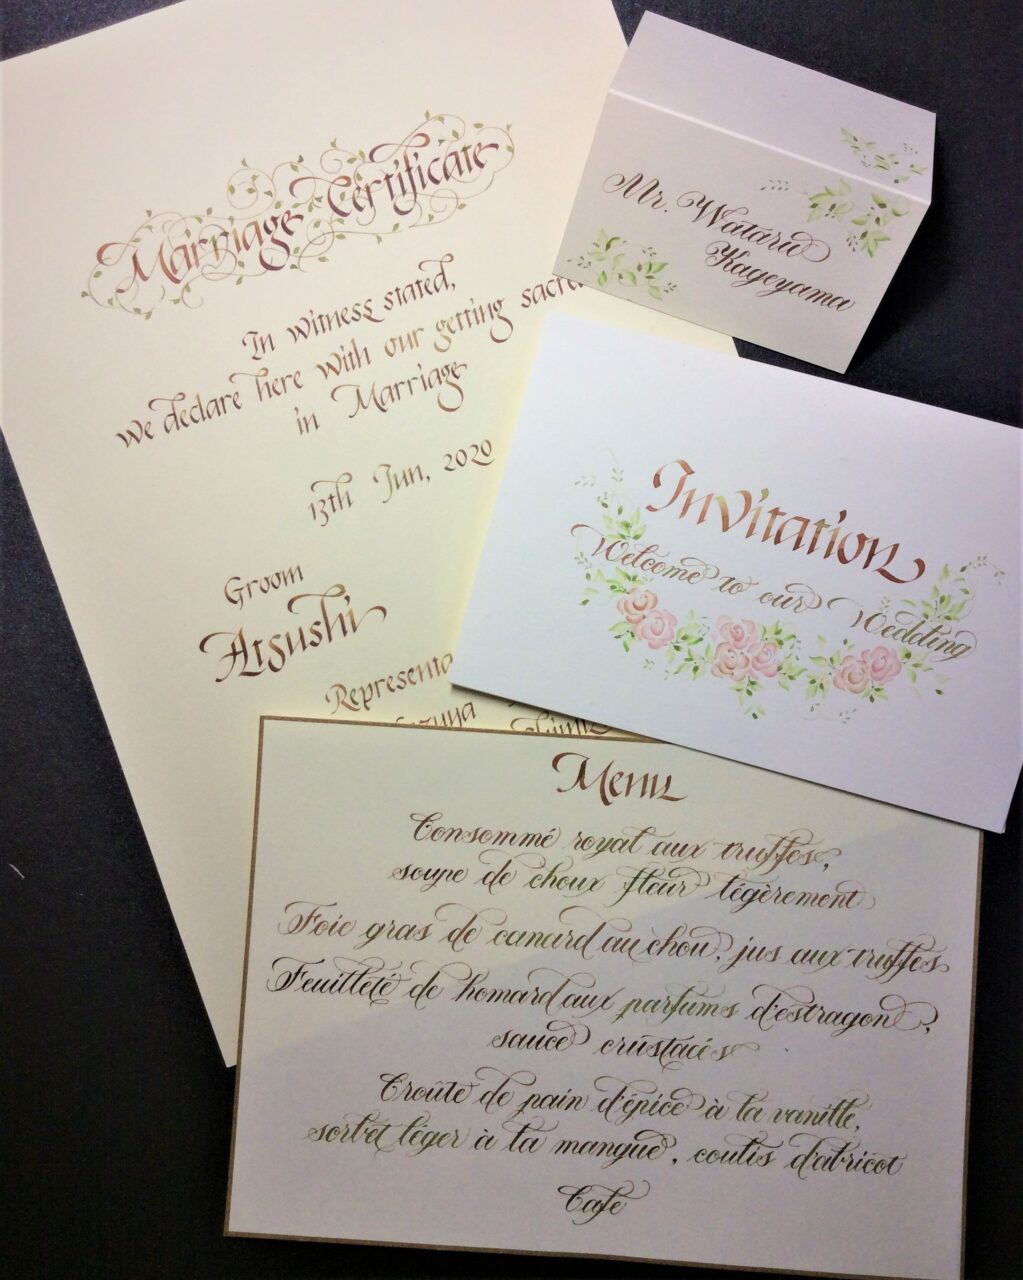 Marriage Certificate
In witness stated,
we declare here with our getting sacre
in Marriage
13th Jun, 2020
Groom
Atsushi
Representa
Mr. Wataru
Kageyama
Invitation
Welcome to our Wedding
Menu
Consommé royal aux truffes,
soupe de choux fleur légèrement
Foie gras de canard au chou, jus aux truffes
Feuilleté de homard aux parfums d'estragon,
sauce crustacés
Croûte de pain d'épice à la vanille,
sorbet léger à la mangue, coulis d'abricot
Cafe